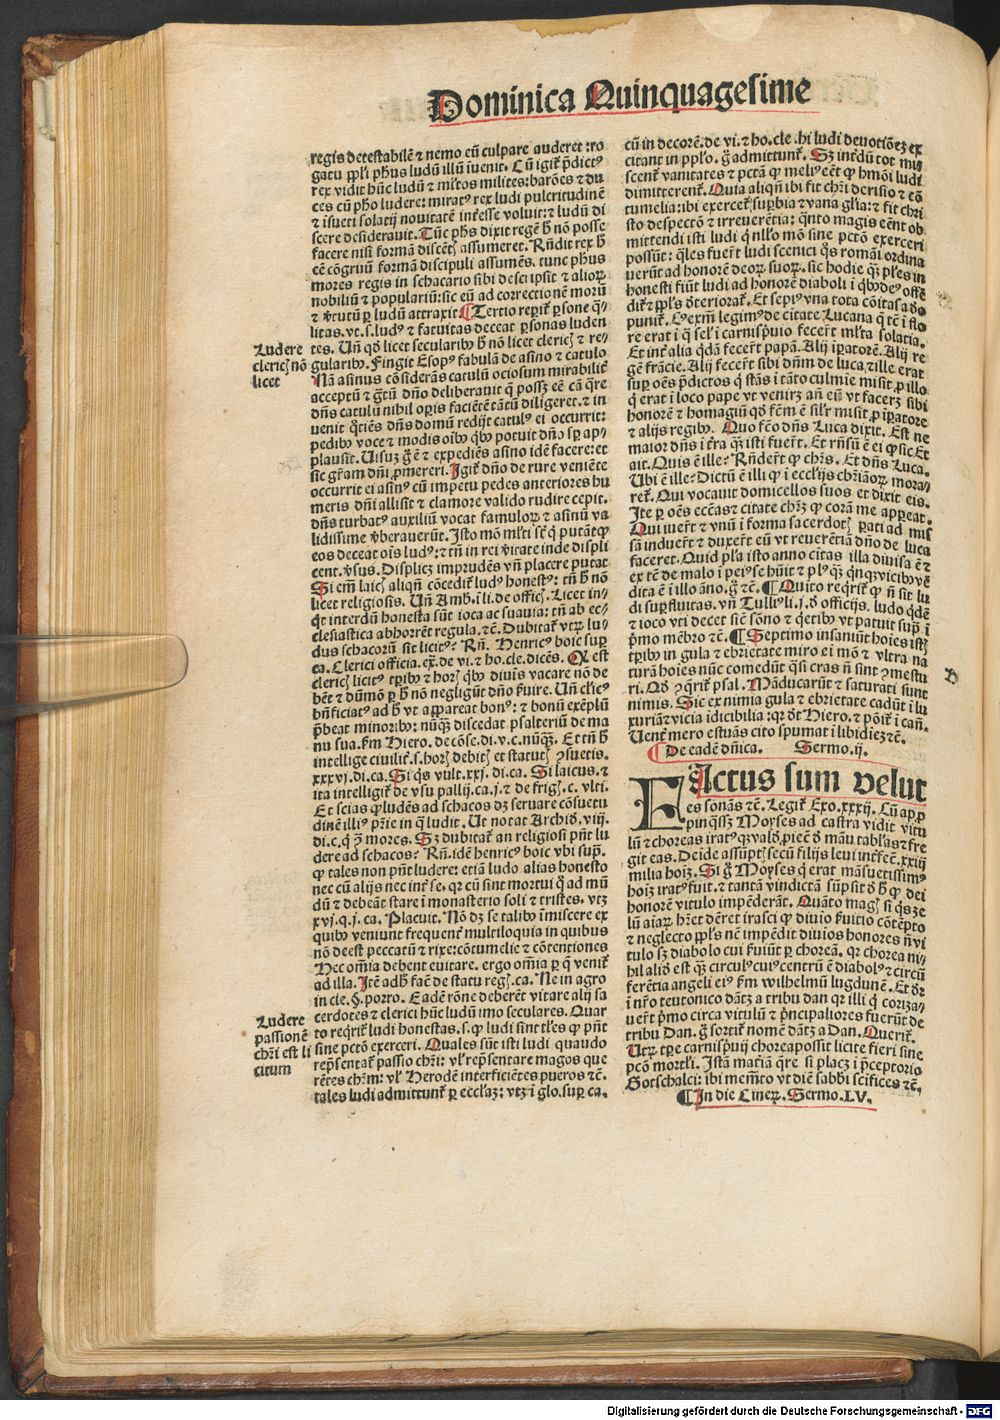 Dominica Quinquagesime
regis detestabilē ⁊ nemo eū culpare auderet: ro
gatu ppl'i phus ludū illū īuenit. Cū igit᷑ p̄dictꝰ
rex vidit hūc ludū ⁊ ml'tos milites: barōes ⁊ du
ces cū pho ludere: miratꝰ rex ludi pulcritudinē
⁊ isueti solatij nouitatē inēesse voluit: ⁊ ludū di
scere desiderauit. Tūc phs dixit regē ħ nō posse
facere nisi formā discētꝭ assumeret. Rn̄dit rex ħ
eē cōgruū formā discipuli assumēs. tunc phus
mores regis in schacario sibi descripsit ⁊ alioꝝ
nobiliū ⁊ populariū: sic eū ad correctionē morū
⁊ v̓tutū ꝑ ludū attraxit. ¶ Tertio reqrit᷑ ꝑsone q̄
litas. vt. s. ludꝰ ⁊ fatuitas deceat ꝑsonas luden
tes. Un̄ qd̓ licet secularibꝰ ħ nō licet clericꝭ ⁊ re⸗
gularibꝰ. Fingit Esopꝰ fabulā de asino ⁊ catulo
Nā asinus cōsiderās catulū ociosum mirabilit᷑
acceptū ⁊ gr̄tū dn̄o deliberauit qͥ possꝫ eē cā q̄re
dn̄s catulū nihil oꝑis faciētē tātū diligeret. ⁊ in
uenit qͥ tiēs dn̄s domū redijt catulꝰ ei occurrit:
pedibꝰ voce ⁊ modis oībꝰ qͥbꝰ potuit dn̄o sꝑ ap⸗
plausit. Uisuꝫ ḡ ē ⁊ expediēs asino idē facere: et
sic gr̄am dn̄i ꝓmereri. Igit᷑ dn̄o de rure veniēte
occurrit ei asinꝰ cū impetu pedes anteriores hu
meris dn̄i allisit ⁊ clamore valido rudire cepit.
dn̄s turbatꝰ auxiliū vocat famuloꝝ ⁊ asinū va
lidissime v̓berauerūt. Isto mō ml'ti st̄ qͥ putātꝙ
eos deceat oīs ludꝰ: ⁊ tn̄ in rei v̓itate inde displi
cent. v̓sus. Displicꝫ imprudēs vn̄ placere putat
Si em̄ laicꝭ aliqn̄ cōcedit᷑ ludꝰ honestꝰ: tn̄ ħ nō
licet religiosis. Un̄ Amb. i li. de officꝭ. Licet in⸗
q̄t interdū honesta sūt ioca ac suauia: tn̄ ab ec⸗
clesiastica abhorrēt regula. ⁊c̄. Dubitat᷑ vtꝝ lu⸗
dus schacorū sit licitꝰ? Rn̄. Henricꝰ boic suꝑ
ca. Clerici officia. ex̄. de vi. ⁊ ho. cle. dicēs. Qͣ est
clericꝭ licitꝰ tꝑibꝰ ⁊ horꝭ qͥbꝰ diuis vacare nō de
bēt ⁊ dūmō ꝑ ħ nō negligūt dn̄o ẜuire. Un̄ clicꝰ
bn̄ficiatꝰ ad ħ vt appareat bonꝰ: ⁊ bonū exēplū
p̄beat minoribꝰ: nūqͣꝫ discedat psalteriū de ma
nu sua. ẜm Hiero. de cōse. di. v. c. nūqͣꝫ. Et tn̄ ħ
intellige ciuilit᷑. s. horꝭ debitꝭ et statutꝭ ꝯsuetis.
xxxvi. di. ca. Si qͥs vult. xxj. di. ca. Si laicus. ⁊
ita intelligit᷑ de vsu pallij. ca. j. ⁊ de frigꝭ. c. vlti.
Et scias qͥ ludēs ad schacos dꝫ seruare cōsuetu
dinē illiꝰ prīe in q̄ ludit. Ut notat Archid. viij.
di. c. q̄ ꝯ mores. Sꝫ dubitat᷑ an religiosi pn̄t lu
dere ad schacos? Rn̄. idē henricꝰ boic vbi supͣ.
ꝙ tales non pn̄t ludere: etiā ludo alias honesto
nec cū alijs nec int᷑ se. qꝛ cū sint mortui qͦ ad mū
dū ⁊ debeāt stare i monasterio soli ⁊ tristes. vtꝫ
xvj. q. j. ca. Placuit. Nō dꝫ se talibꝰ īmiscere ex
quibꝰ veniunt frequent᷑ multiloquia in quibus
nō deest peccatū ⁊ rixe: cōtumelie ⁊ cōtentiones
Hec om̄ia debent euitare. ergo om̄ia ꝑ q̄ venit᷑
ad illa. Itē adh̓ faē de statu regꝭ. ca. Ne in agro
in cle. §. porro. Eadē rōne deberēt vitare alij sa
cerdotes ⁊ clerici hūc ludū imo seculares. Quar
to reqͥrit᷑ ludi honestas. s. ꝙ ludi sint tl'es ꝙ pn̄t
sine pctō exerceri. Quales sūt isti ludi quādo
rep̄sentat᷑ passio chr̄i: vl' rep̄sentare magos que
rētes chr̄m: vl' Herodē interficiētes pueros ⁊c̄.
tales ludi admittunt᷑ ꝑ eccl'iaꝫ: vtꝫ i glo. suꝑ ca.
Ludere
clericꝭ nō
licet
Ludere
passionē
chr̄i est li
citum
cū in decorē. de vi. ⁊ ho. cle. hi ludi deuotiōeꝫ ex
citant in ppl'o. ḡ admittunt᷑. Sꝫ int̓dū tot mi⸗
scent᷑ vanitates ⁊ pctā ꝙ meliꝰ eēt ꝙ hmōi ludi
dimitterent᷑. Quia aliqn̄ ibi fit chr̄i derisio ⁊ cō
tumelia: ibi exercet᷑ suꝑbia ⁊ vana gl'ia: ⁊ fit chri
sto despectō ⁊ irreuerētia: qͣnto magis eēnt ob
mittendi isti ludi qͥ nllo mō sine pctō exerceri
possūt: q̄les fuerūt ludi scenici qͦs romāi ordina
uerūt ad honorē deoꝝ suoꝝ. sic hodie qͣꝫ pl'es in
honesti fiūt ludi ad honorē diaboli i qͥbꝰ deꝰ offē
dit᷑ ⁊ ppl's deteriorat᷑. Et sepiꝰ vna tota cōitas a deo
punit᷑. ¶ Exm̄ legimꝰ de citate Lucana q̄ tē i flo
re erat i q̄ sel' i carnispuio fecer̄t ml'ta solatia.
Et int᷑ alia qͥdā fecer̄t papā. Alij īꝑatorē. Alij re
gē frācie. Alij fecer̄t sibi dn̄m de luca, ⁊ ille erat
suꝑ oēs p̄dictos qͥ stās i tāto culmie misit ꝓ illo
qͥ erat i loco pape vt venirꝫ an̄ eū vt facerꝫ sibi
honorē ⁊ homagiū qd̓ fēm ē sil'r misit ꝓ īꝑatore
⁊ alijs regibꝰ. Quo fc̄o dn̄s Luca dixit. Est ne
maior dn̄s i tr̄a qͣꝫ isti fuer̄t. Et rn̄sū ē ei ꝙ sic. Et
ait. Quis ē ille? Rn̄der̄t ꝙ chr̄s. Et dn̄s Luca.
Ubi ē ille? Dictū ē illi ꝙ i eccl'ijs chr̄ianoꝝ mora⸗
ret᷑. Qui vocauit domicellos suos et dixit eis.
Ite ꝑ oēs ecc̄as ⁊ citate chr̄ꝫ ꝙ corā me appareat.
Qui iuer̄t ⁊ vnū i forma sacerdotꝭ parati ad mis
sā induer̄t ⁊ duxer̄t eū vt reuerētiā dn̄o de luca
faceret. Quid pl'a isto anno citas illa diuisa ē ⁊
ex tē de malo i peiꝰ se hūit ⁊ plꝰ qͣꝫ qͥnqͣꝫ vicibꝰ vē
dita ē i illo āno. ḡ ⁊c̄. ¶ Quīto reqͥrit᷑ ꝙ n̄ sit lu
di suꝑfluitas. vn̄ Tulliꝰ li. j. d̓ officijs. ludo qͥdē
⁊ ioco vti decet sic̄ sōno ⁊ q̄etibꝰ vt patuit supͣ i
p̓mo mēbro ⁊c̄. ¶ Septimo insaniūt hoīes istꝭ
tꝑibꝰ in gula ⁊ ebrietate miro ei mō ⁊ vltra na
turā hoīes nūc comedūt qͣsi cras n̄ sint ꝯmestu
ri. Qd̓ ꝯqͥrit᷑ psal. Māducarūt ⁊ saturati sunt
nimis. Sic ex nimia gula ⁊ ebrietate cadūt i lu
xuriā ⁊ vicia idicibilia: qꝛ d̓t Hiero. ⁊ pōit᷑ i can.
Uent᷑ mero estuās cito spumat i libidieꝫ ⁊c̄.
¶ De eadē dn̄ica. Sermo. ij.
FActus sum velut
es sonās ⁊c̄. Legit᷑ Exo. xxxij. Cū ap̄p
pinqͣssꝫ Moyses ad castra vidit vitu
lū ⁊ choreas iratꝰ qͣꝫ valde ꝓiec̄ d̓ māu tabl'as ⁊ fre
git eas. Deide assūptꝭ secū filijs leui int̓fec̄. xxiij
milia hoīꝫ. Si ḡ Moyses qͥ erat māsuetissimꝰ
hoīꝫ iratꝰ fuit. ⁊ tantā vindictā sūpsit d̓ ħ ꝙ dei
honorē vitulo impēderāt. Quāto magꝭ si qͥs ze
lū aīaꝝ hēet dēret irasci ꝙ diuio ẜuitio cōtēpto
⁊ neglecto ppl's nē impēdit diuios honores n̄ vi
tulo sꝫ diabolo cui ẜuiūt ꝑ choreā. qꝛ chorea ni⸗
hil aliō est qͣꝫ circulꝰ cuiꝰ centrū ē diabolꝰ ⁊ circū
ferētia angeli eiꝰ ẜm wilhelmū lugdunē. Et dr̄
i nr̄o teutonico dātꝫ a tribu dan qꝛ illi qͥ corizā⸗
uer̄t p̓mo circa vitulū ⁊ p̓ncipaliores fuerūt de
tribu Dan. ḡ sortit᷑ nomē dātꝫ a Dan. Querit᷑.
Utꝝ tꝑe carnispuij chorea possit licite fieri sine
pcō mortl'i. Istā mat̓iā q̄re si placꝫ i p̄ceptorio
Gotschalci: ibi mem̄to vt diē sabbi sc̄ifices ⁊c̄.
¶ In die Cineꝝ. Sermo. LV.
Digitalisierung gefördert durch die Deutsche Forschungsgemeinschaft - DFG